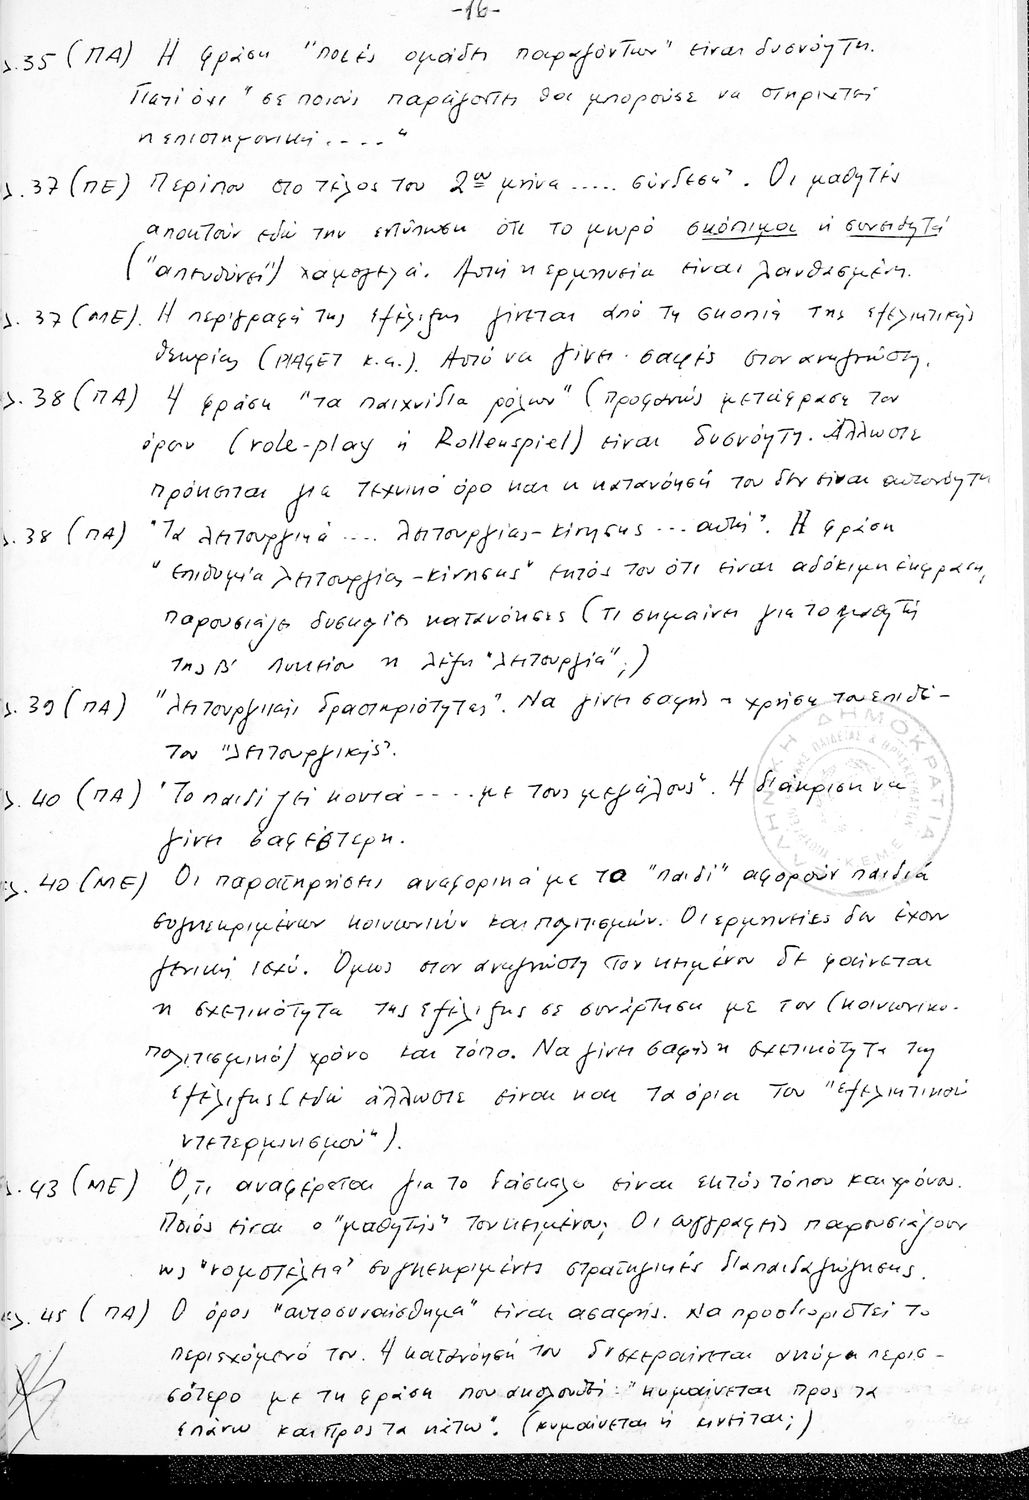 -16-
σ.35 (ΠΑ) Η φράση "ποιές ομάδες παραγόντων" είναι δυσνόητη.
Γιατί όχι "σε ποιούς παράγοντες θα μπορούσε να στηριχτεί
η επιστημονική ...."
σ.37 (ΠΕ) Περίπου στο τέλος του 2ου μήνα ..... σύνδεση". Οι μαθητές
αποκτούν εδώ την εντύπωση ότι το μωρό σκόπιμα ή συνειδητά
("απευθύνει") χαμόγελα. Αυτή η ερμηνεία είναι λανθασμένη.
σ.37 (ΜΕ). Η περιγραφή της εξέλιξης γίνεται από τη σκοπιά της εξελικτικής
θεωρίας (PIAGET κ.α.). Αυτό να γίνει σαφές στον αναγνώστη.
σ.38 (ΠΑ) Η φράση "τα παιχνίδια ρόλων" (προφανώς μετάφραση του
όρου (role-play ή Rollenspiel) είναι δυσνόητη. Άλλωστε
πρόκειται για τεχνικό όρο και η κατανόησή του δεν είναι αυτονόητη
σ.38 (ΠΑ) "Τα λειτουργικά .... λειτουργίας-κίνησης ... αυτή". Η φράση
"επιθυμία λειτουργίας-κίνησης" εκτός του ότι είναι αδόκιμη έκφραση,
παρουσιάζει δυσκολίες κατανόησης (τι σημαίνει για το μαθητή
της Β' Λυκείου η λέξη "λειτουργία";)
σ.39 (ΠΑ) "λειτουργικής δραστηριότητας". Να γίνει σαφής η χρήση του επιθέ-
του "λειτουργικής".
σ.40 (ΠΑ) "Το παιδί ζεί κοντά ----με τους μεγάλους". Η διάκριση να
γίνει σαφέστερη.
σελ.40 (ΜΕ) Οι παρατηρήσεις αναφορικά με το "παιδί" αφορούν παιδιά
συγκεκριμένων κοινωνιών και πολιτισμών. Οι ερμηνείες δεν έχουν
γενική ισχύ. Όμως στον αναγνώστη του κειμένου δε φαίνεται
η σχετικότητα της εξέλιξης σε συνάρτηση με τον (κοινωνικο-
πολιτισμικό) χρόνο και τόπο. Να γίνει σαφής η σχετικότητα της
εξέλιξης (εδώ άλλωστε είναι και τα όρια του "εξελικτικού
ντετερμινισμού").
σ.43 (ΜΕ) Ό,τι αναφέρεται για το δάσκαλο είναι εκτός τόπου και χρόνου.
Ποιός είναι ο "μαθητής" του κειμένου; Οι συγγραφείς παρουσιάζουν
ως "νομοτέλεια" συγκεκριμένες στρατηγικές διαπαιδαγώγησης.
σελ.45 (ΠΑ) Ο όρος "αυτοσυναίσθημα" είναι ασαφής. Να προσδιοριστεί το
περιεχόμενό του. Η κατανόησή του δυσχεραίνεται ακόμη περισ-
σότερο με τη φράση που ακολουθεί: "κυμαίνεται προς τα
επάνω και προς τα κάτω". (κυμαίνεται ή κινείται;)
ΕΛΛΗΝΙΚΗ ΔΗΜΟΚΡΑΤΙΑ
Κ.Ε.Μ.Ε.